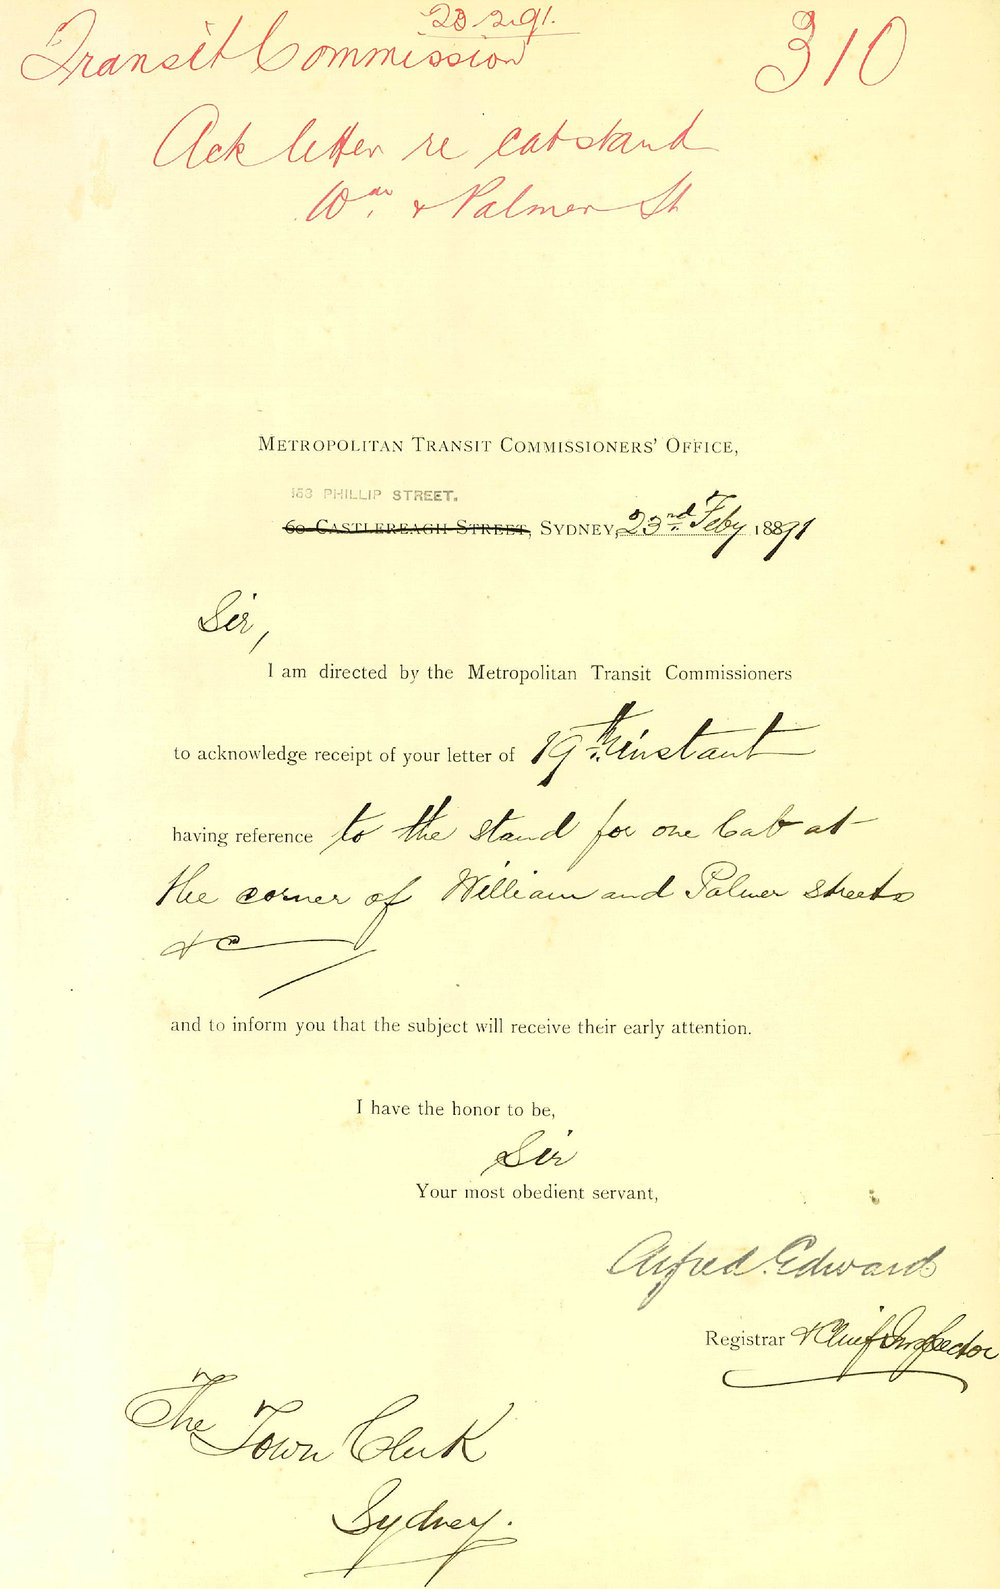 23.2.91.
Transit Commission 310
Ack letter re cabstand
Wm. & Palmer St
METROPOLITAN TRANSIT COMMISSIONERS' OFFICE,
153 PHILLIP STREET.
60 CASTLEREAGH STREET, SYDNEY, 23rd Feby 1891
Sir,
I am directed by the Metropolitan Transit Commissioners
to acknowledge receipt of your letter of 19th instant
having reference to the stand for one Cab at
the corner of William and Palmer streets
&c
and to inform you that the subject will receive their early attention.
I have the honor to be,
Sir
Your most obedient servant,
Alfred Edward
Registrar & Chief Inspector
The Town Clerk
Sydney.